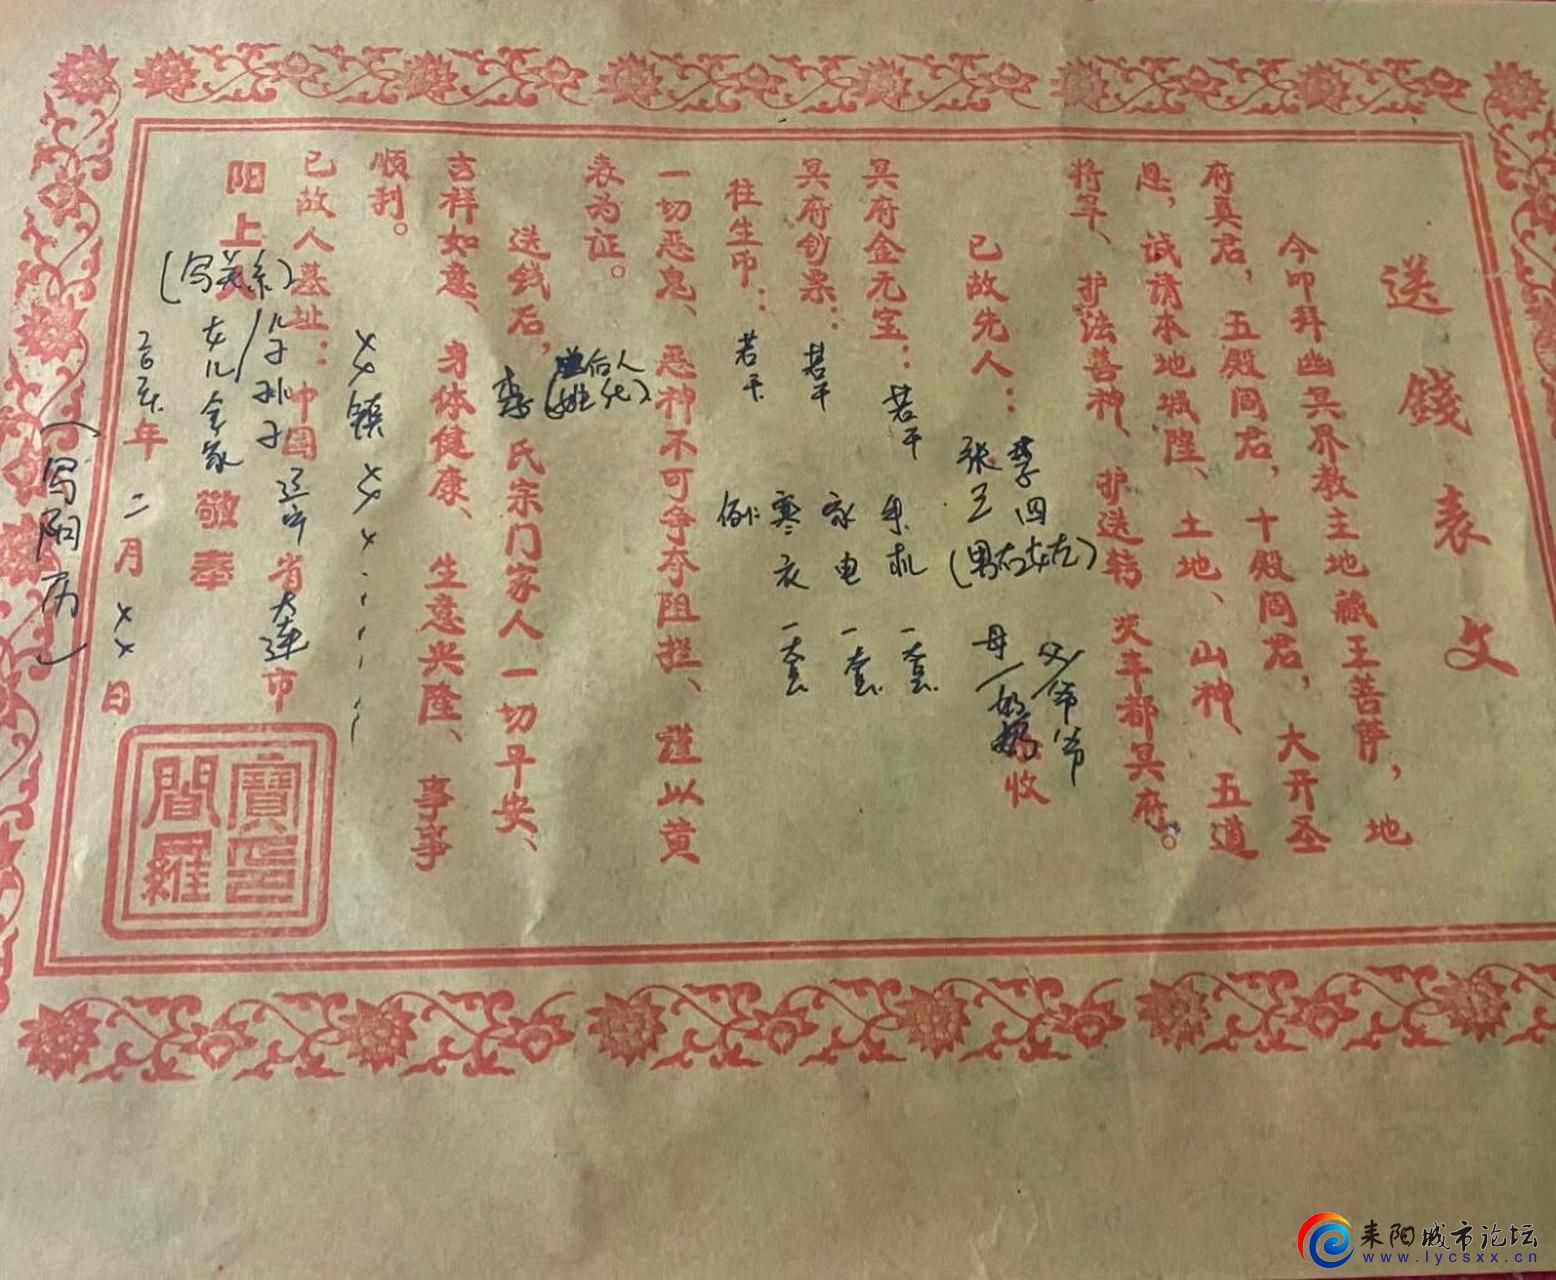 送錢表文
今叩拜幽冥界教主地藏王菩萨，地
府真君，五殿阎君，十殿阎君，大开圣
恩，诚请本地城隍、土地、山神、五道
将军、护法善神、护送转交丰都冥府。
已故先人：李四 张三 (男右女左) 父/爷爷 母/奶奶 收
冥府金元宝：若干
冥府钞票：若干
往生币：若干
例 寒衣一套 家电一套 手机一套
一切恶鬼、恶神不可争夺阻拦、谨以黄
表为证。
送钱后，李氏宗门家人一切平安、
吉祥如意、身体健康、生意兴隆、事事
顺利。
已故人墓址：中国辽宁省大连市
××镇×××
阳上人 (写关系) 儿子/孙子 女儿全家 敬奉
年二月××日
(写阳历)
寶印
閻羅
耒阳城市论坛
www.lycsxx.cn